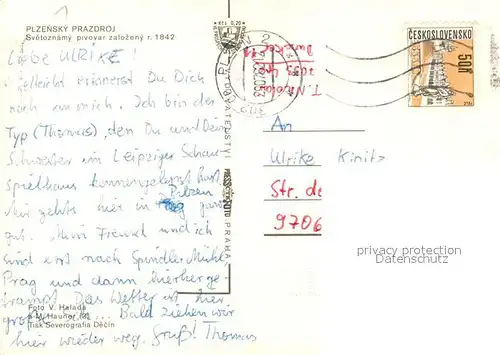 PLZEŇSKÝ PRAZDROJ
Světoznámý pivovar založený r. 1842
Liebe ULRIKE!
Vielleicht erinnerst Du Dich
noch an mich. Ich bin der
Typ (Thomas), den Du und Deine
Schwester im Leipziger Schau-
spielhaus kennengelernt hast.
Mir gehts hier in Pilzen ganz
gut. Mein Freund und ich
sind erst nach Spindler Mühle
Prag und dann hierherge-
trampt. Das Wetter ist hier
Foto V. Heleda
groß Bald ziehen wir
Tisk Severografia Děčín
hier wieder weg. Gruß! Thomas
Kčs 0,20
VYDAVATELSTVÍ PRESSFOTO PRAHA
PL
2
T. Nikolai
7033
ČESKOSLOVENSKO
50h
An
Ulrike Kinitz
Str. de
9706
privacy protection
VERONIKAD.COM